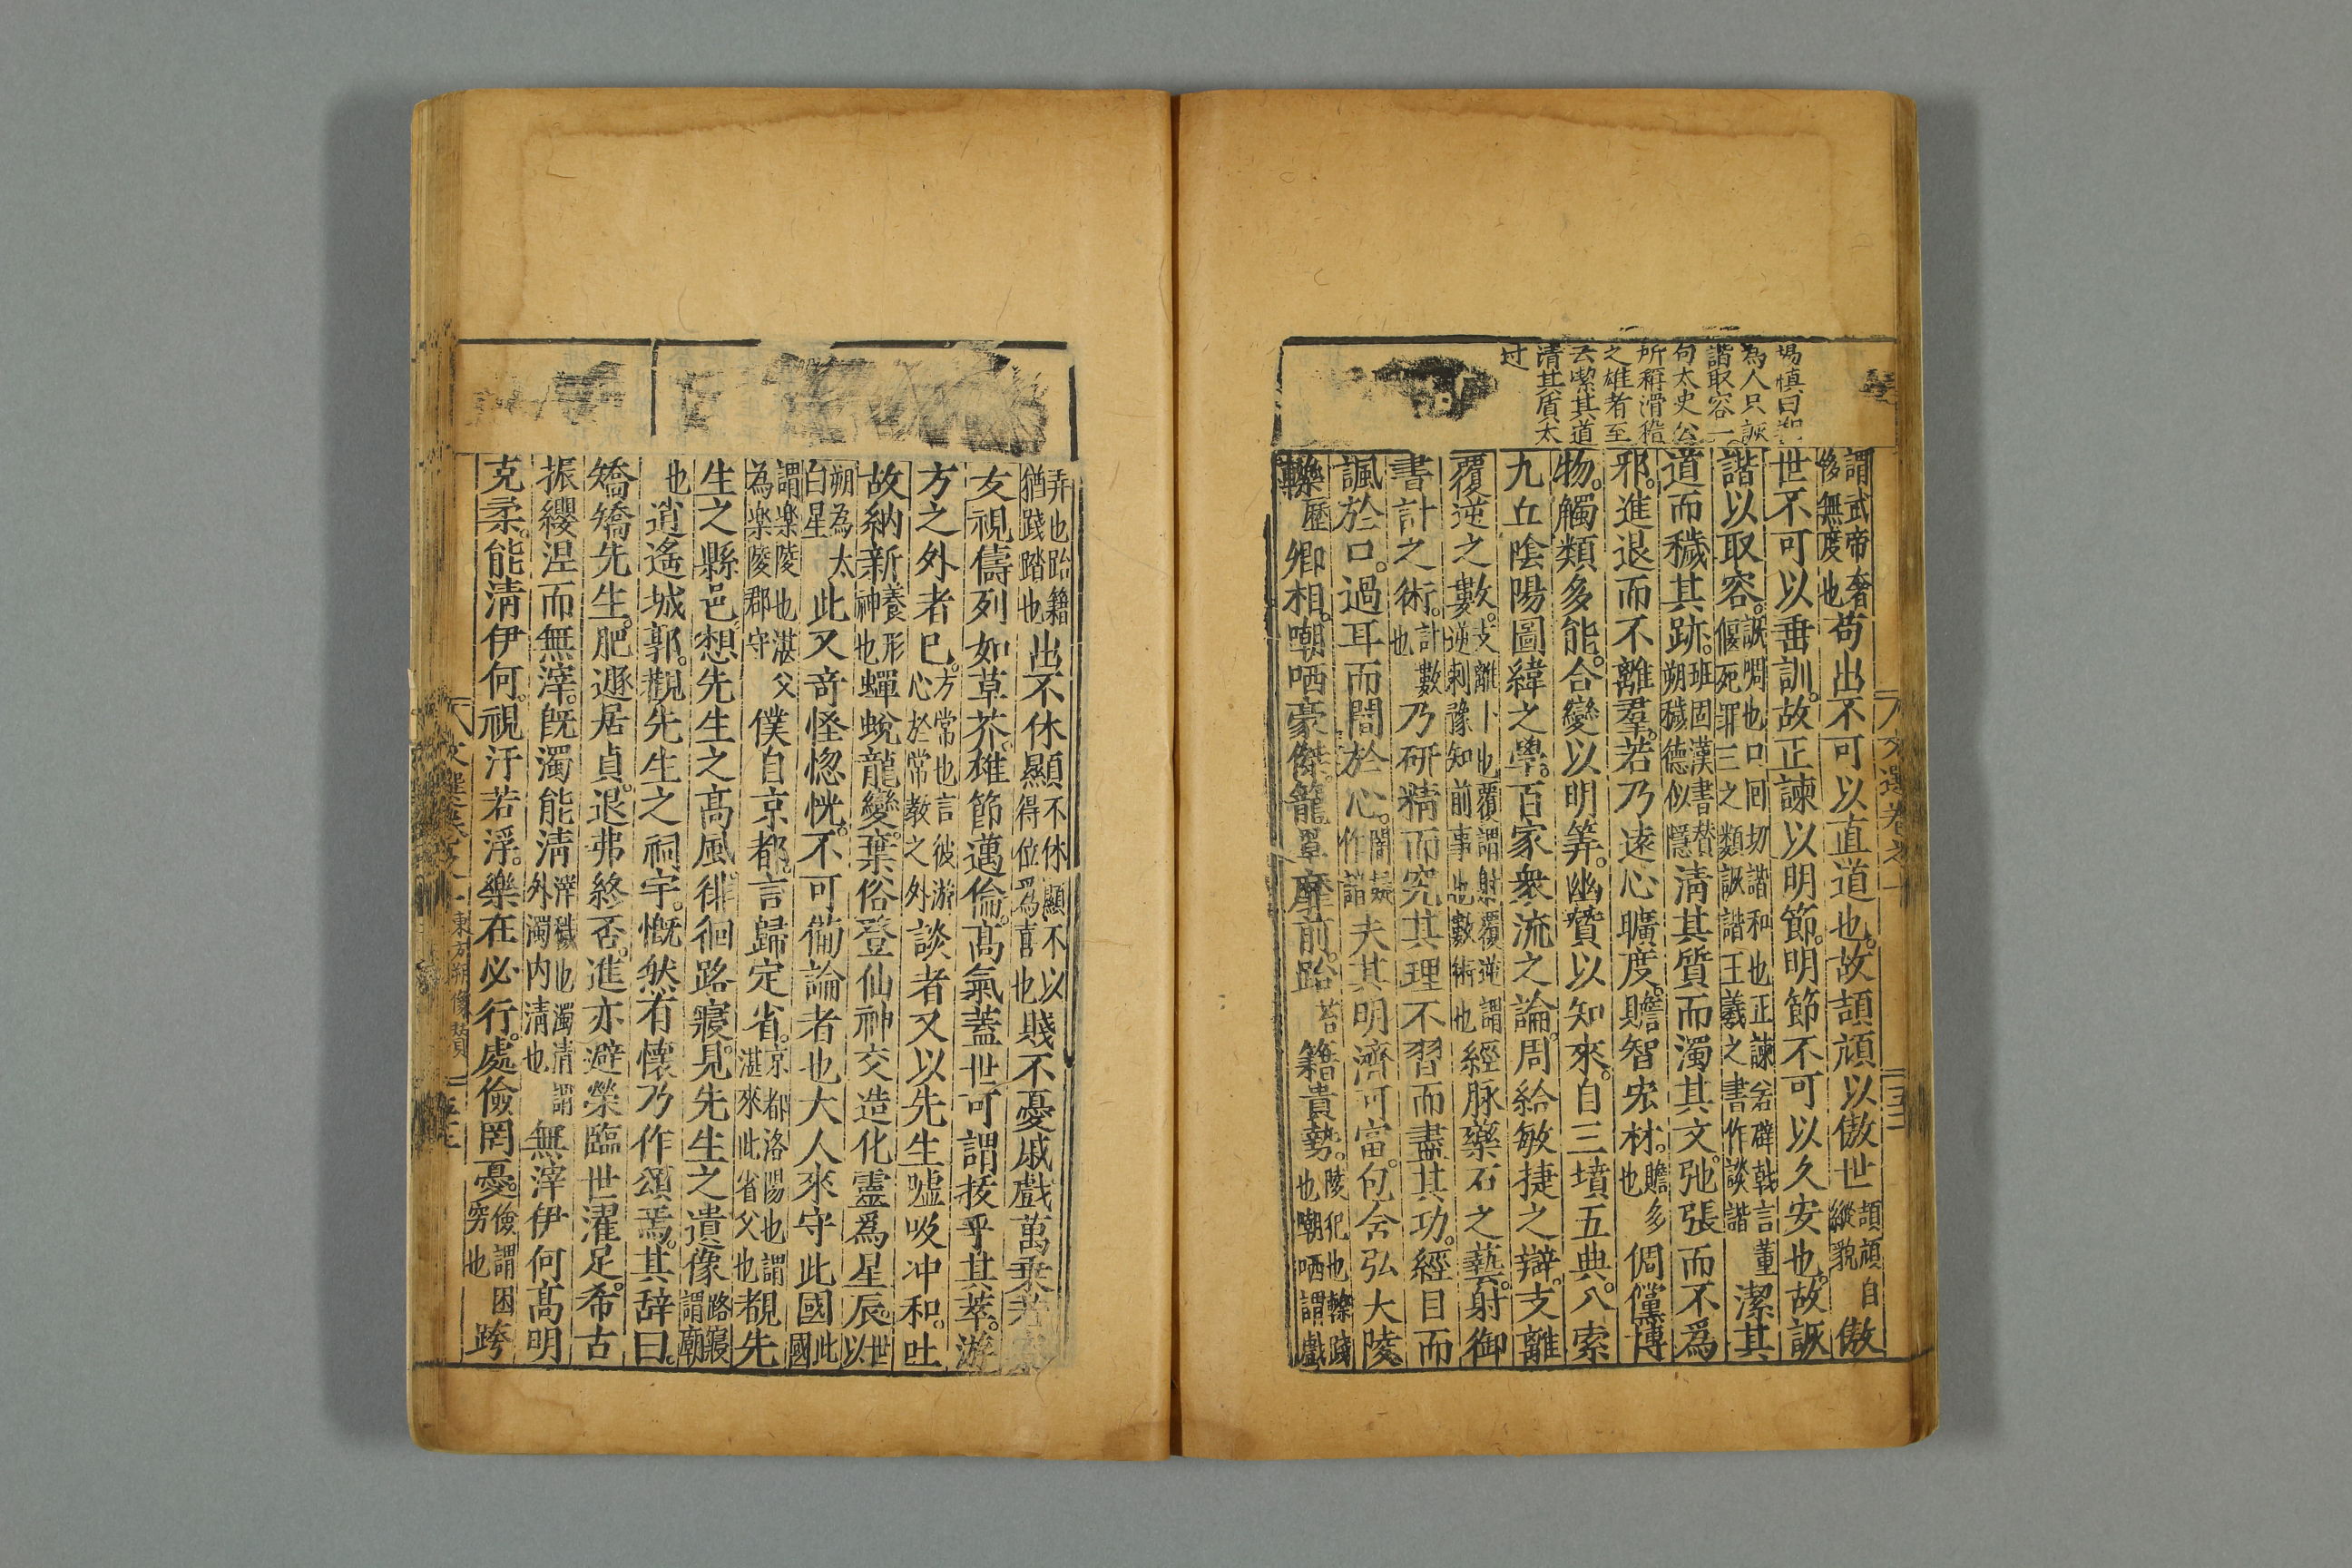 楊慎曰朔
為人只詼
諧取容一
句太史公
所稱滑稽
之雄者至
云潔其道
清其質太
过
謂武帝奢侈無度也苟出不可以直道也故頡頏以傲世頡頏自縱貌傲
世不可以垂訓故正諫以明節明節不可以久安也故詼
諧以取容詼啁也口回切諧和也正諫若辟戟言董偃死罪三之類詼諧王羲之書作談諧潔其
道而穢其跡班固漢書賛朔穢德似隱清其質而濁其文弛張而不爲
邪進退而不離羣若乃遠心曠度贍智宏材贍多也倜儻博
物觸類多能合變以明筭幽贊以知來自三墳五典八索
九丘陰陽圖緯之學百家衆流之論周給敏捷之辯支離
覆逆之數支離卜也覆謂射覆逆謂逆刺豫知前事也數術也經脉藥石之藝射御
書計之術計數也乃研精而究其理不習而盡其功經目而
諷於口過耳而闇於心闇疑作諳夫其明濟可富包含弘大陵
轢歷卿相嘲哂豪傑籠罩靡前跆苔籍貴勢陵犯也轢踐也嘲哂謂戲
弄也跆籍猶踐踏也出不休顯不休顯不以得位爲喜也賤不憂戚戲萬乗若
友視儔列如草芥雄節邁倫高氣蓋世可謂拔乎其萃游
方之外者巳方常也言彼游心於常教之外談者又以先生嘘吸冲和吐
故納新養形神也蟬蛻龍變棄俗登仙神交造化靈爲星辰世以
朔為太白星此又奇怪惚恍不可備論者也大人來守此國此國
謂楽陵也湛父為楽陵郡守僕自京都言歸定省京都洛陽也謂湛來此省父也覩先
生之縣邑想先生之高風徘徊路寢見先生之遺像路寢謂廟
也逍遙城郭觀先生之祠宇慨然有懷乃作頌焉其辞曰
矯矯先生肥遯居貞退弗終否進亦避榮臨世濯足希古
振纓涅而無滓旣濁能清滓穢也濁清謂外濁内清也無滓伊何高明
克柔能清伊何視汙若浮樂在必行處儉罔憂儉謂困穷也跨